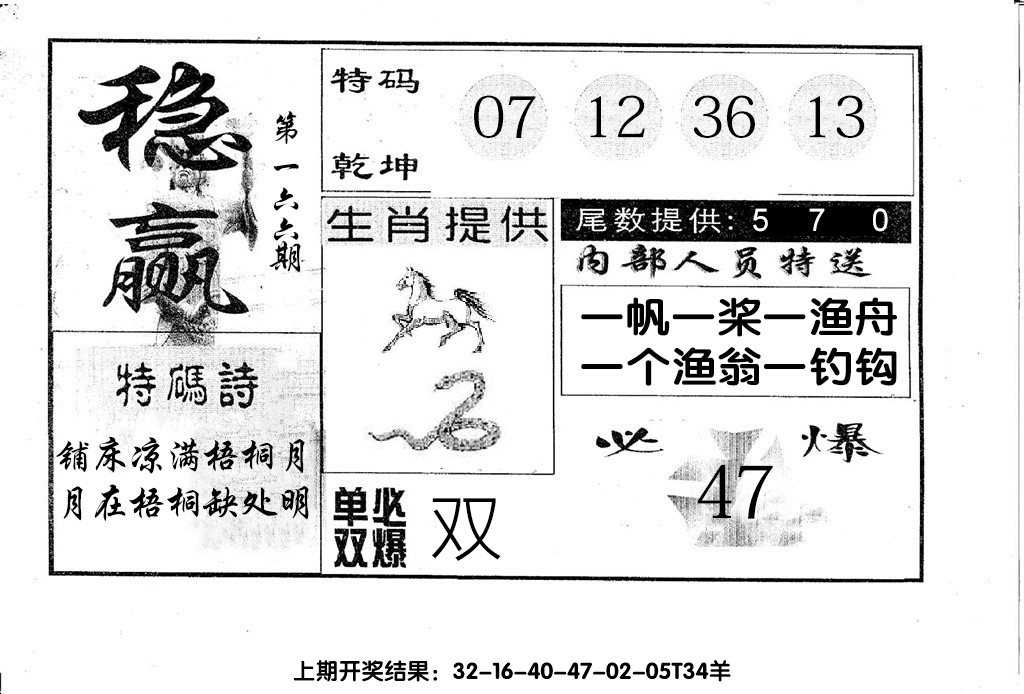 稳赢
第一六六期
特码诗
铺床凉满梧桐月
月在梧桐缺处明
特码
乾坤
07 12 36 13
生肖提供
单双必爆
双
尾数提供: 5 7 0
内部人员特送
一帆一桨一渔舟
一个渔翁一钓钩
必爆
47
上期开奖结果：32-16-40-47-02-05T34羊